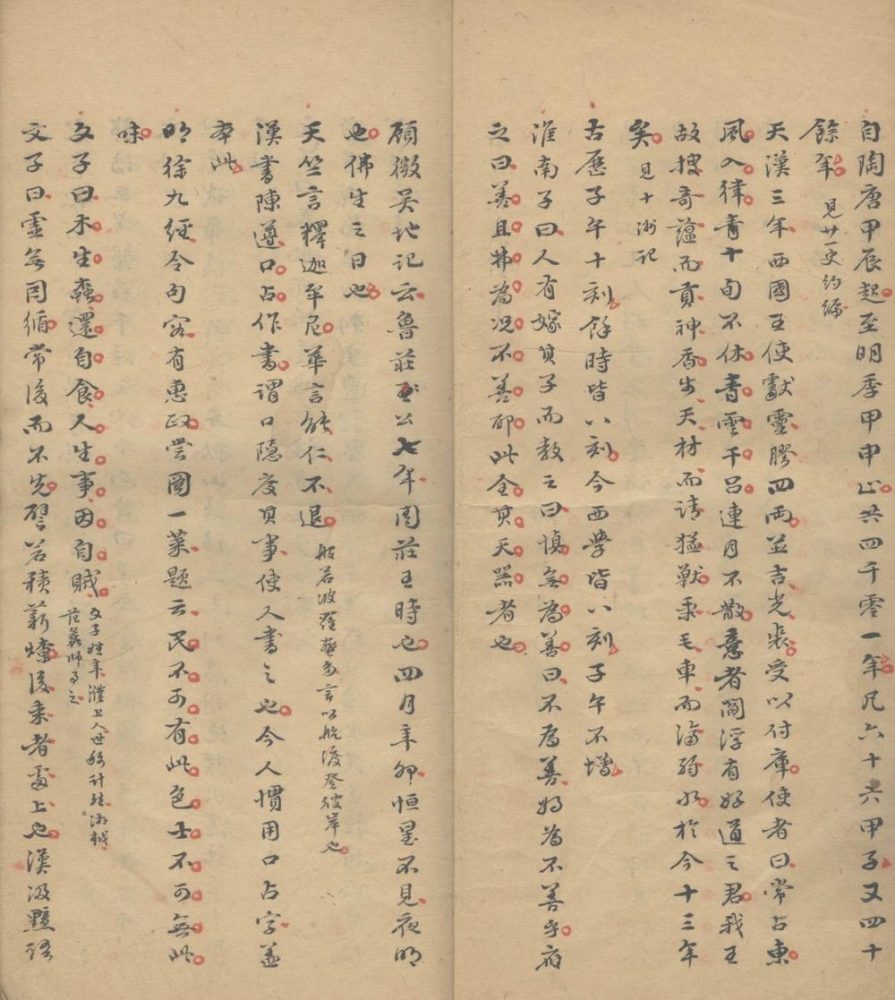 自陶唐甲辰起至明季甲申止共四千零一年凡六十六甲子又四十
餘年 見廿一史約編
天漢三年西國王使獻靈膠四兩並吉光裘受以付庫使者曰常占東
風入律青十旬不休青雲干呂連月不散意者閻浮有好道之君我王
故搜奇蘊而貢神香步天材而請猛獸乘毛車而濟弱水於今十三年
矣 見十洲記
古歷子午十刻餘時皆八刻今西學皆八刻子午不增
淮南子曰人有嫁其子而教之曰慎無為善曰不為善將為不善乎應
之曰善且弗為况不善耶此全其天器者也
顧微吴地記云魯莊公七年周莊王時也四月辛卯恒星不見夜明
也佛生之日也
天竺言釋迦牟尼華言能仁不退 般若波羅蜜多言以航渡登彼岸也
漢書陳遵口占作書謂口隐度其事使人書之也今人慣用口占字盖
本此
明徐九經令句容有惠政嘗圖一菜題云民不可有此色士不可無此
味
文子曰木生蟲還自食人生事因自賊 文子姓辛濮上人世称計然
范蠡師事之
文子曰虛無因循常後而不先譬若積薪燎後來者處上也漢汲黯語